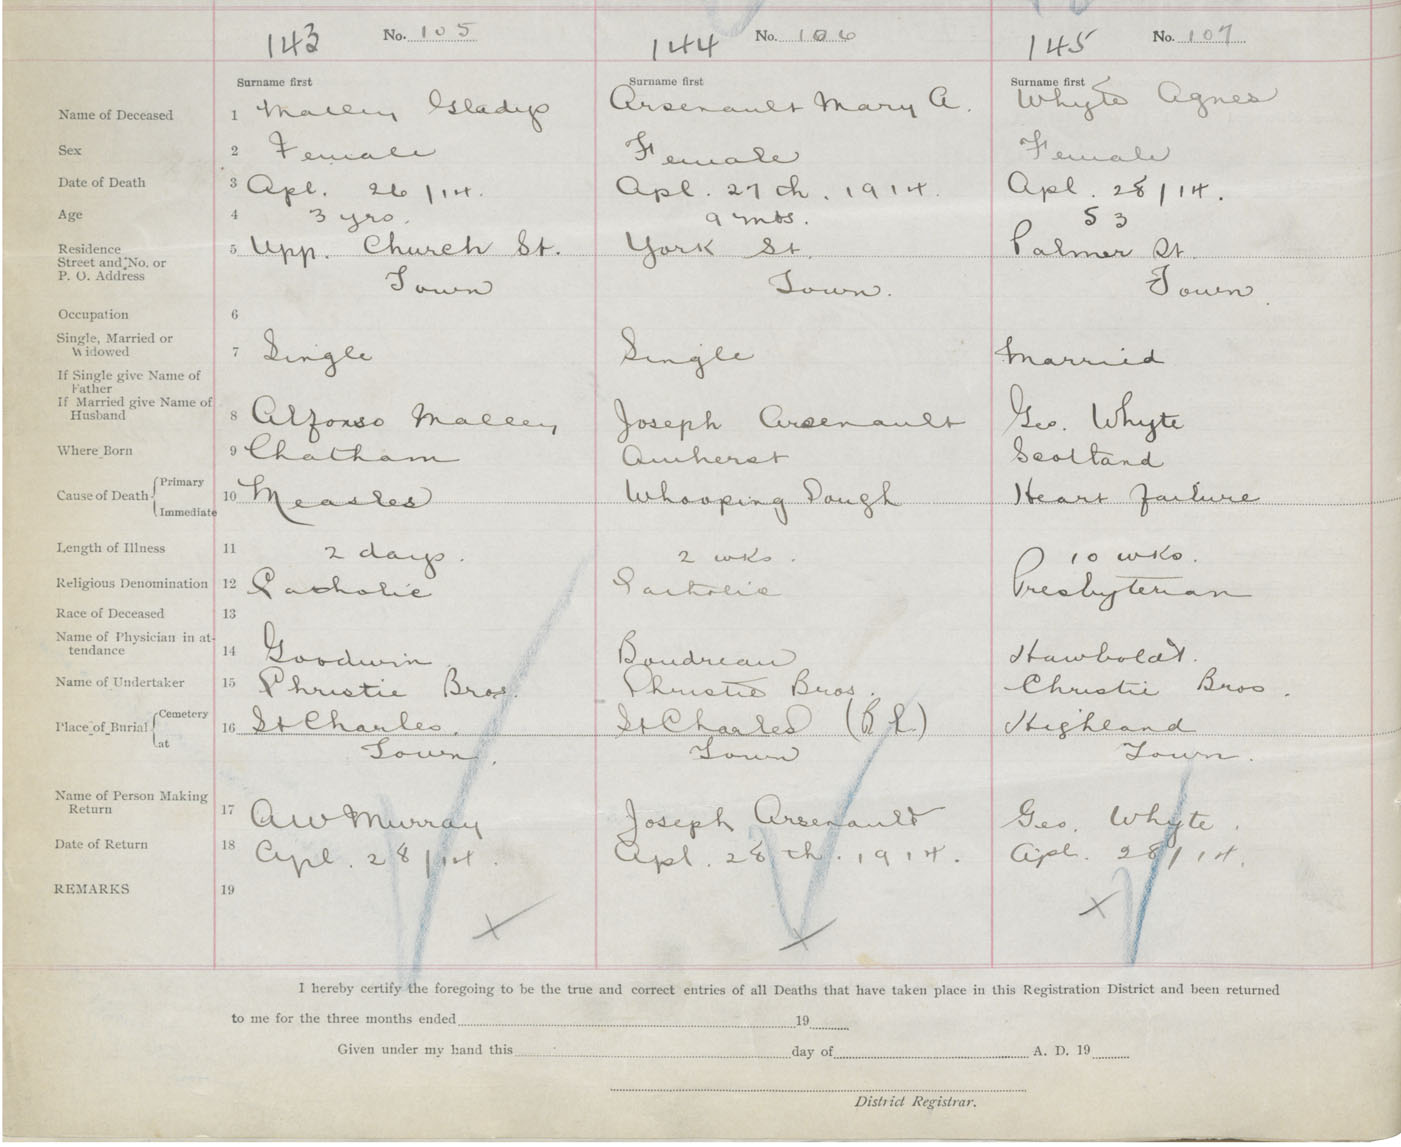 143 No. 105 144 No. 106 145 No. 107
Surname first Surname first Surname first
Name of Deceased 1 Malley Gladys Arsenault Mary A. Whyte Agnes
Sex 2 Female Female Female
Date of Death 3 Apl. 26/14. Apl. 27th. 1914. Apl. 28/14.
Age 4 3 yrs. 9 mos. 53
Residence 5 Upp. Church St. York St. Palmer St.
Street and No. or
P. O. Address Town Town. Town.
Occupation 6
Single, Married or
Widowed 7 Single Single Married
If Single give Name of
Father
If Married give Name of
Husband 8 Alfonso Malley Joseph Arsenault Geo. Whyte
Where Born 9 Chatham Amherst Scotland
Cause of Death Primary 10 Measles Whooping Cough Heart failure
Immediate
Length of Illness 11 2 days. 2 wks. 10 wks.
Religious Denomination 12 Catholic Catholic Presbyterian
Race of Deceased 13
Name of Physician in at-
tendance 14 Goodwin Boudreau Hawboldt.
Name of Undertaker 15 Christie Bros. Christie Bros. Christie Bros.
Place of Burial Cemetery 16 St Charles. St Charles Highland
at Town. Town Town.
Name of Person Making
Return 17 AW Murray Joseph Arsenault Geo. Whyte.
Date of Return 18 Apl. 28/14. Apl. 28th. 1914. Apl. 28/14.
REMARKS 19
I hereby certify the foregoing to be the true and correct entries of all Deaths that have taken place in this Registration District and been returned
to me for the three months ended 19
Given under my hand this day of A. D. 19
District Registrar.